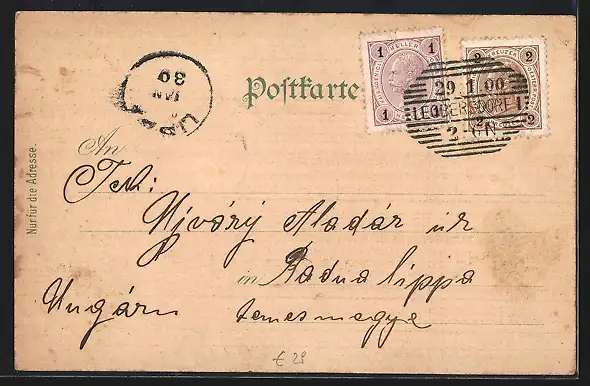 Postkarte
1 HELLER 1
1 1
2 KREUZER 2
2 2
29.1.00
LEOBERSDORF
2-6N
JAN
30
An
Tek:
Ujváry Aladár úr
in Radna lippa
Ungarn
temesmegye
Nur für die Adresse.
€ 25